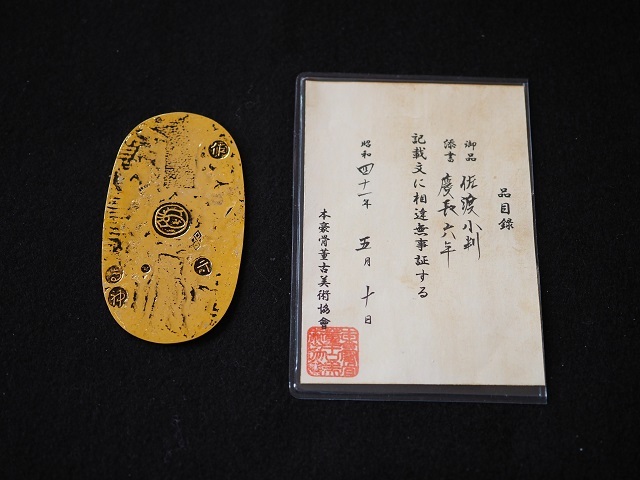 品目録
御品 佐渡小判
添書 慶長六年
記載文に相違無事証する
昭和四十一年 五月十日
本豪骨董古美術協會